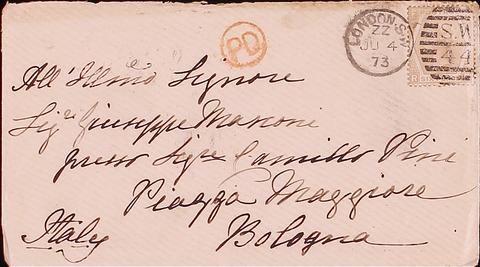 PD
LONDON S.W
ZZ
JU 4
73
S.W
44
All' Illmo Signore
Sigre Giuseppe Marconi
presso Sigre Camillo Pini
Piazza Maggiore
Italy Bologna